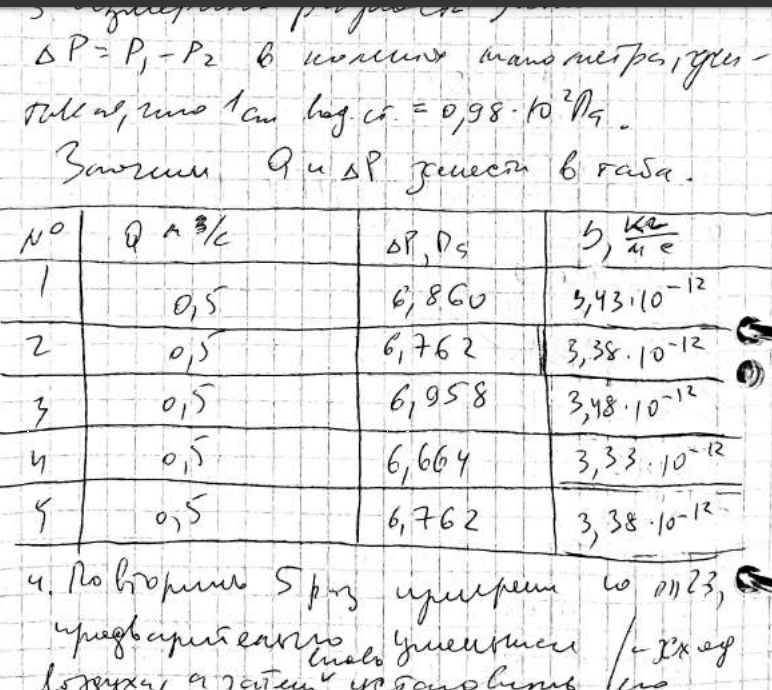 3. измерить разность
ΔP = P₁ - P₂ в коленах манометра, учи-
тывая, что 1 см вод. ст. = 0,98·10² Па.
Значения Q и ΔP занести в табл.
№ Q м³/с ΔP, Па η, кг/м с
1 0,5 6,860 3,43·10⁻¹²
2 0,5 6,762 3,38·10⁻¹²
3 0,5 6,958 3,48·10⁻¹²
4 0,5 6,664 3,33·10⁻¹²
5 0,5 6,762 3,38·10⁻¹²
4. Повторить 5 раз измерения по пп 23,
предварительно уменьшая расход
воздуха, а затем вновь установить